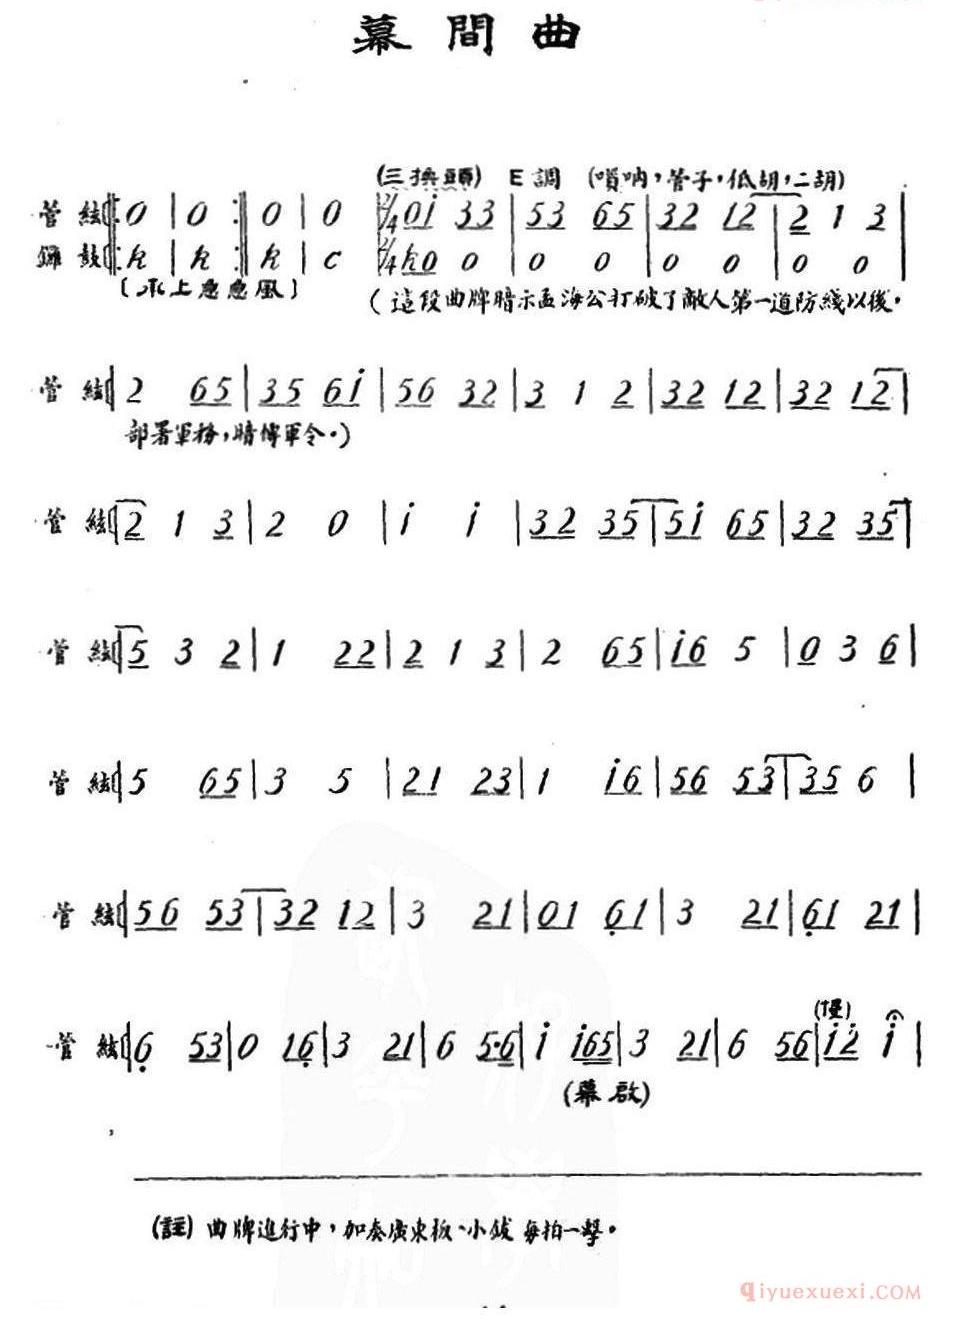 幕間曲
(三換頭) E調 (嗩吶，管子，低胡，二胡)
管絃 : 0 | 0 : 0 | 0 2/4 0i 33 | 53 65 | 32 12 | 2 1 3 |
鑼鼓 : 化 | 化 : 化 | C 2/4 化0 0 | 0 0 | 0 0 | 0 0
〔承上急急風〕 (這段曲牌暗示孟海公打破了敵人第一道防綫以後。
管絃 2 65 | 35 6i | 56 32 | 3 1 2 | 32 12 | 32 12 |
部署軍務，暗傳軍令。)
管絃 2 1 3 | 2 0 | i i | 32 35 | 5i 65 | 32 35 |
管絃 5 3 2 | 1 22 | 2 1 3 | 2 65 | i6 5 | 0 3 6 |
管絃 5 65 | 3 5 | 21 23 | 1 i6 | 56 53 | 35 6 |
管絃 56 53 | 32 12 | 3 21 | 01 61 | 3 21 | 61 21 |
(慢)
管絃 6 53 | 0 16 | 3 21 | 6 5·6 | i i65 | 3 21 | 6 56 | i2 i |
(幕啟)
(註) 曲牌進行中，加奏廣東板、小鈸每拍一擊。
qiyuexuexi.COM